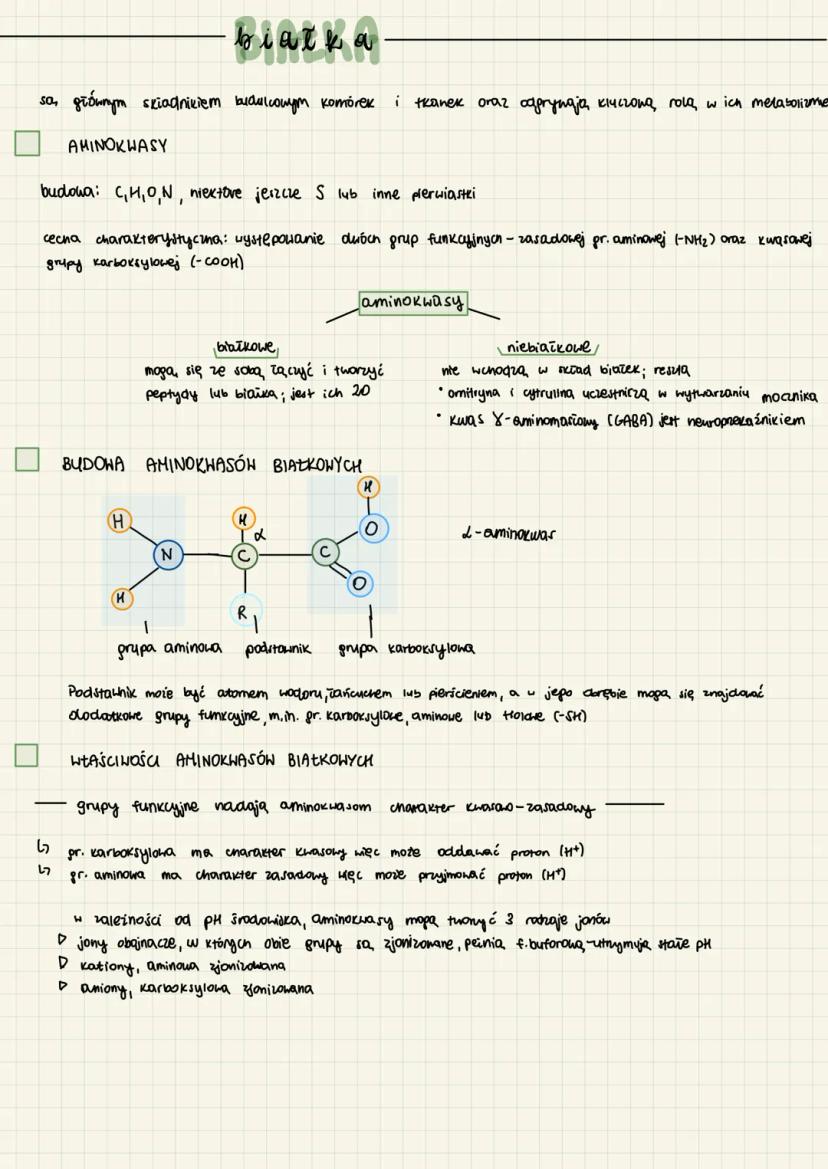 białka
są głównym składnikiem budulcowym komórek i tkanek oraz odgrywają kluczową rolą w ich metabolizmie
AMINOKWASY
budowa: C,H,O,N, niektóre jeszcze S lub inne pierwiastki
cecha charakterystyczna: występowanie dwóch grup funkcyjnych - zasadowej gr. aminowej (-NH₂) oraz kwasowej
grupy karboksylowej (-COOH)
aminokwasy
białkowe
mogą się ze sobą łączyć i tworzyć
peptydy lub białka; jest ich 20
niebiałkowe
nie wchodzą w skład białek; reszta
• ornityna i cytrulina uczestniczą w wytwarzaniu mocznika
• kwas γ-aminomasłowy (GABA) jest neuroprzekaźnikiem
BUDOWA AMINOKWASÓW BIAŁKOWYCH
H
H H α O
N C C
α-aminokwas
O
H R
grupa aminowa podstawnik grupa karboksylowa
Podstawnik może być atomem wodoru, łańcuchem lub pierścieniem, a w jego obrębie mogą się znajdować
dodatkowe grupy funkcyjne, m.in. gr. karboksylowe, aminowe lub tiolowe (-SH)
WŁAŚCIWOŚCI AMINOKWASÓW BIAŁKOWYCH
grupy funkcyjne nadają aminokwasom charakter kwasowo-zasadowy
↳ gr. karboksylowa ma charakter kwasowy więc może oddawać proton (H⁺)
↳ gr. aminowa ma charakter zasadowy więc może przyjmować proton (H⁺)
w zależności od pH środowiska, aminokwasy mogą tworzyć 3 rodzaje jonów
▷ jony obojnacze, w których obie grupy są zjonizowane, pełnią f. buforową - utrzymują stałe pH
▷ kationy, aminowa zjonizowana
▷ aniony, karboksylowa zjonizowana